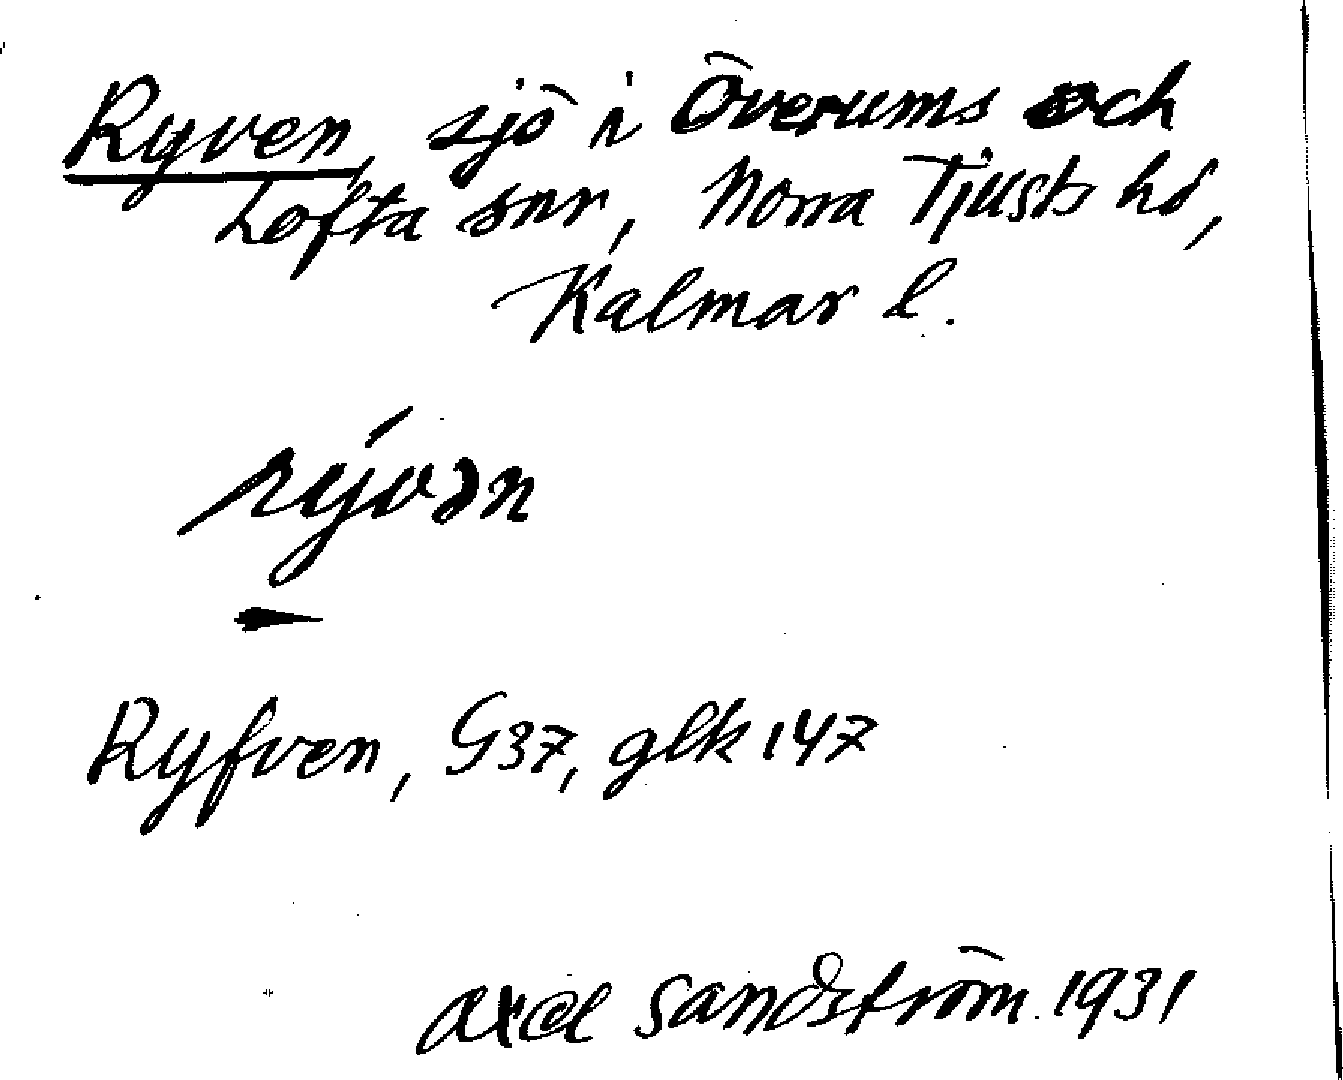 Ryven, sjö i Överums och
Lofta snr, Norra Tjusts hd,
Kalmar l.
rývən
Ryfven, G37, glk 147
Axel Sandström 1931